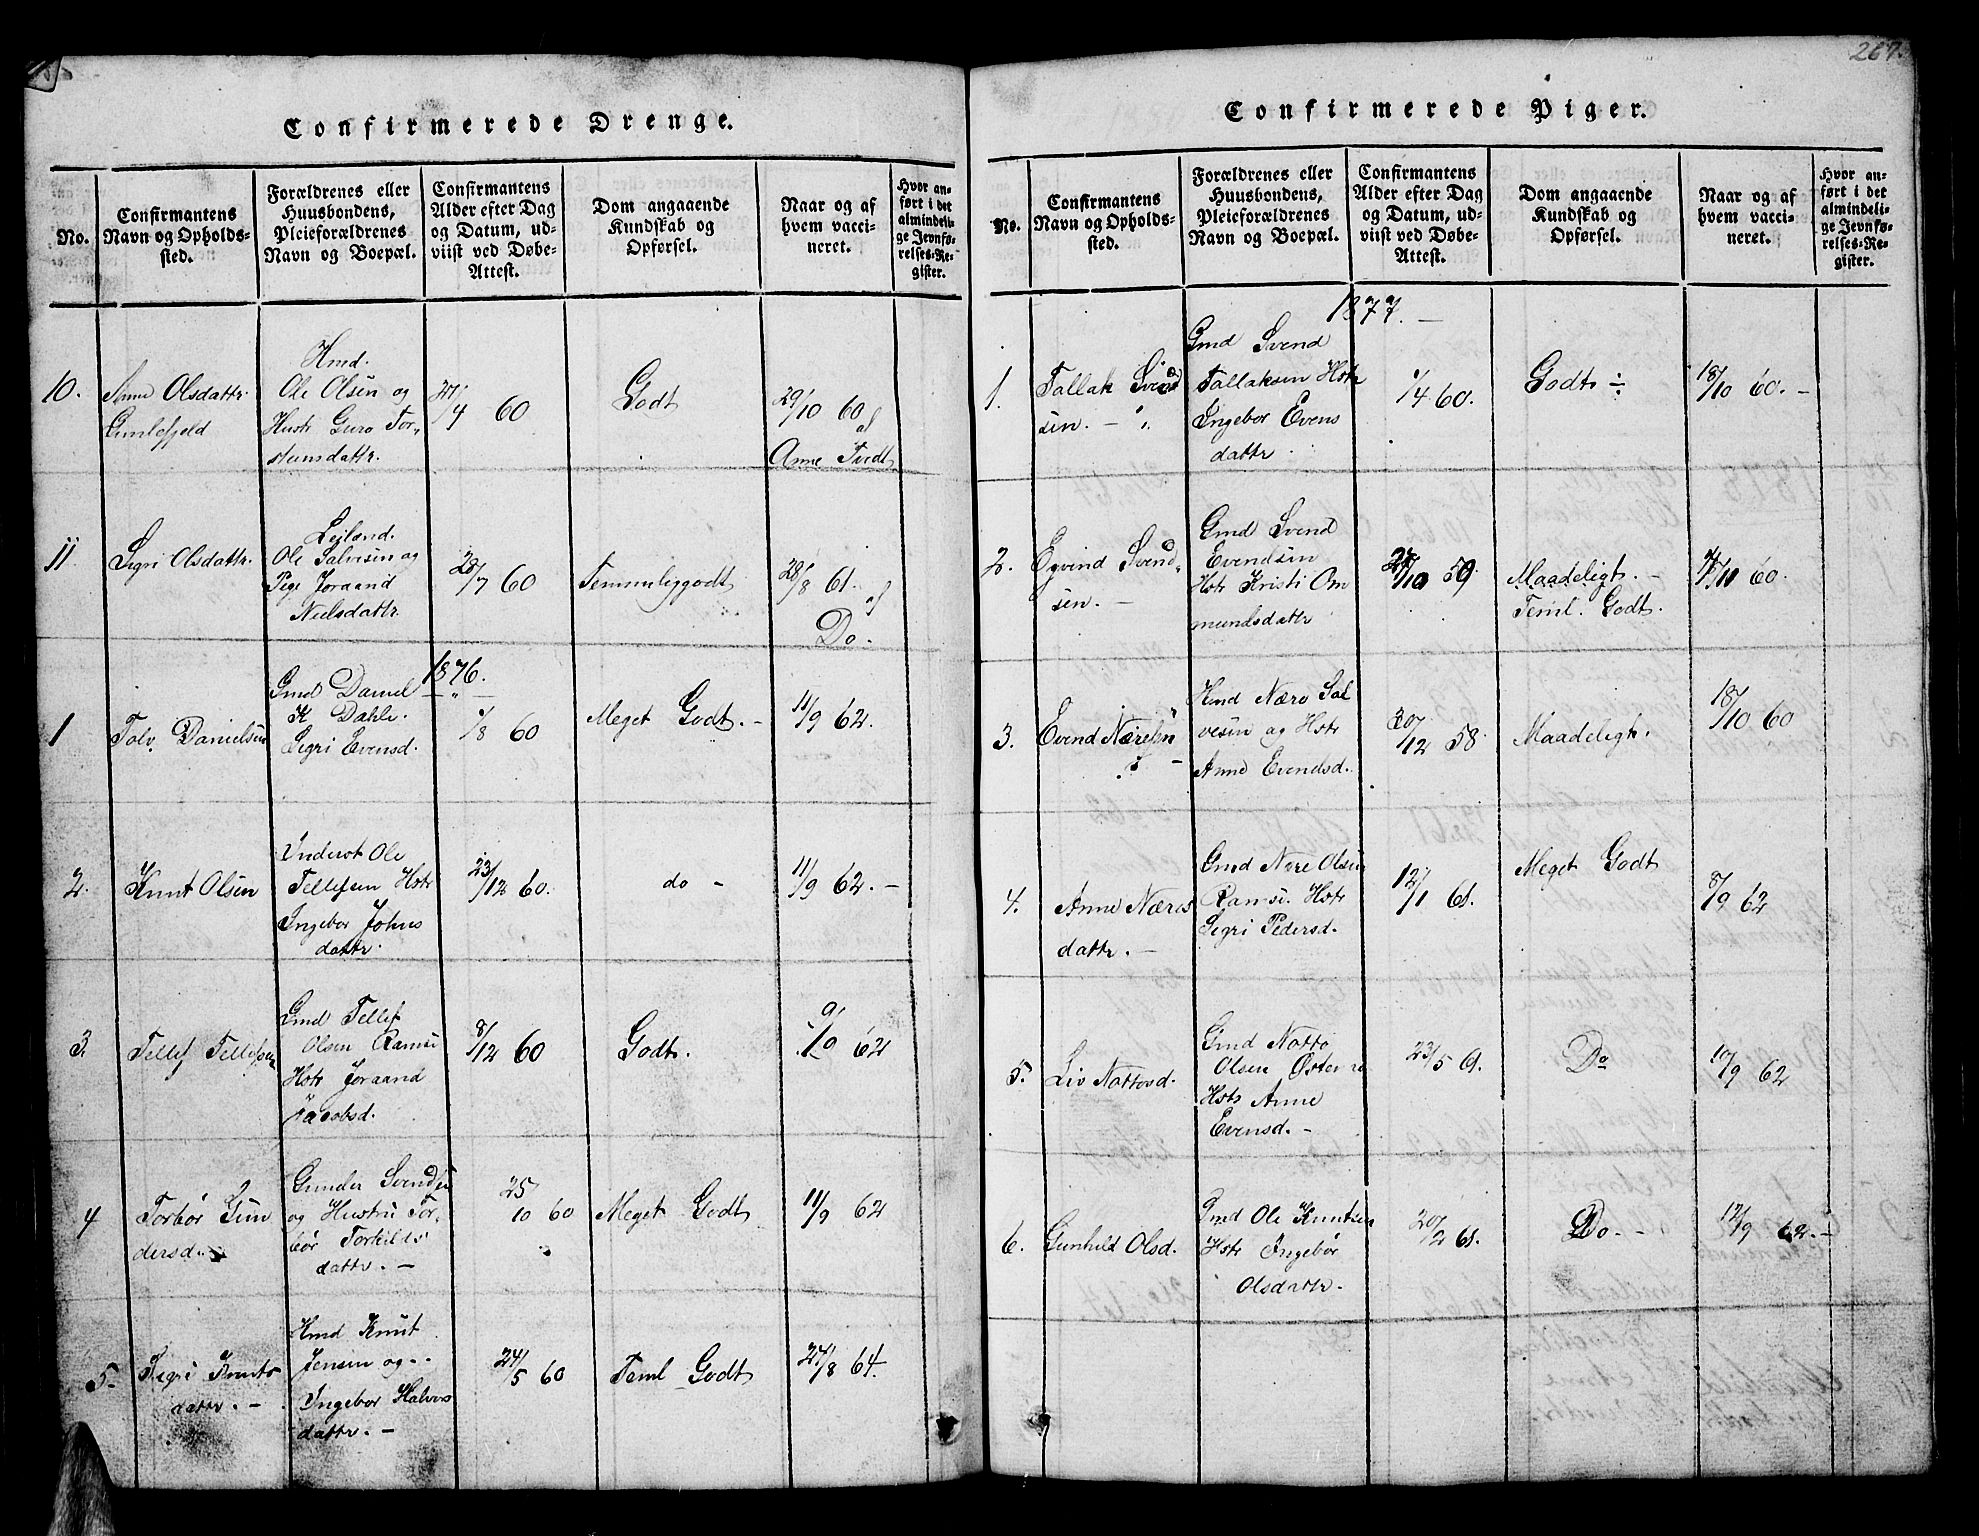 267.
Confirmerede Drenge.
No.
Confirmantens
Navn og Opholds-
sted.
Forældrenes eller
Huusbondens,
Pleieforældrenes
Navn og Boepæl.
Confirmantens
Alder efter Dag
og Datum, ud-
viist ved Døbe-
Attest.
Dom angaaende
Kundskab og
Opførsel.
Naar og af
hvem vacci-
neret.
Hvor an-
ført i det
almindeli-
ge Jevnfø-
relses-Re-
gister.
10.
Anne Olsdattr.
Gunlefjeld
Hmd.
Ole Olsen og
Hustr Guro Tor-
steinsdattr.
27/4 60
Godt
29/10 60
af
Anne Tvedt
11
Sigri Olsdattr.
Leilænd.
Ole Salvesen og
Pige Joraand
Nielsdattr.
28/7 60
Temmeliggodt
28/8 61.
af
Do.
1876.
1
Tolv. Danielsen
Gmd Daniel
K Dahle.
Sigri Evensd.
1/8 60
Meget Godt. -
11/9 62.
2.
Knut Olsen
Inderst Ole
Tellefsen Hstr
Ingebor Johns
dattr.
23/12 60.
do -
11/9 62. -
3.
Tellef Tellefsen
Gmd Tellef
Olsen Ramse
Hstr Joraand
Jacobsd.
8/12 60
Godt.
9/9 62
4
Torbør Gun
dersd.
Gunder Svendsen
og Hustru Tor-
bør Torkilds
dattr. -
25/10 60
Meget Godt
11/9 62
5.
Sigri Knuts
dattr. -
Hmd Knut
Jensen og
Ingebor Halvors
dattr. -
24/5 60
Teml Godt
24/8 64.
Confirmerede Piger.
No.
Confirmantens
Navn og Opholds-
sted.
Forældrenes eller
Huusbondens,
Pleieforældrenes
Navn og Boepæl.
Confirmantens
Alder efter Dag
og Datum, ud-
viist ved Døbe-
Attest.
Dom angaaende
Kundskab og
Opførsel.
Naar og af
hvem vacci-
neret.
Hvor an-
ført i det
almindeli-
ge Jevnfø-
relses-Re-
gister.
1877. -
1.
Tallak Svend
sen. -
Gmd Svend
Tallaksen Hstr
Ingebor Evens
dattr
1/4 60.
Godt ÷
18/10 60. -
2.
Eyvind Svend-
sen. -
Gmd Svend
Evendsen
Hstr Kristi Om
mundsdattr
59.
Maadeligt. -
Teml. Godt.
60.
3.
Evend Næresen
Hmd Nære Sal
vesen og Hstr
Anne Evendsd.
30/12 58
Maadeligt.
18/10 60
4.
Anne Næres
dattr. -
Gmd Nere Olsen
Ramse. Hstr
Sigri Pedersd.
12/1 61.
Meget Godt
8/9 62
5.
Liv Nottovd.
Gmd Notto
Olsen
Hstr Anne
Evensd. -
23/5 61.
Do
10/9 62
6.
Gunhild Olsd.
Gmd Ole Knutsen
Hstr Ingebør
Olsdattr.
20/2 61.
Do. -
12/9 62. -